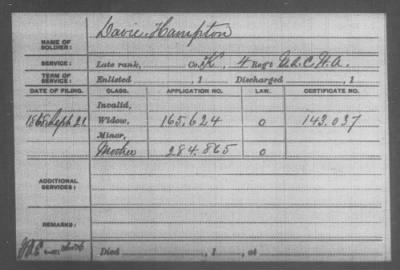 NAME OF SOLDIER: Davie, Hampton
SERVICE: Late rank, Co. K, 4 Reg't U.S.C.H.A.
TERM OF SERVICE: Enlisted , 1 Discharged , 1
DATE OF FILING. CLASS. APPLICATION NO. LAW. CERTIFICATE NO.
Invalid,
1865 Sept 21 Widow, 165,624 0 143,037
Minor,
Mother 284,865 0
ADDITIONAL SERVICES:
REMARKS:
Died , 1 , at